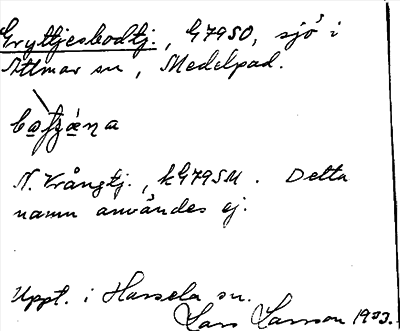 Gryttjesbodtj., G79SO, sjö i
Attmar sn, Medelpad.
N. Krångtj., kG79SM. Detta
namn användes ej.
Uppt. i Hassela sn.
Lars Larsson 1933.